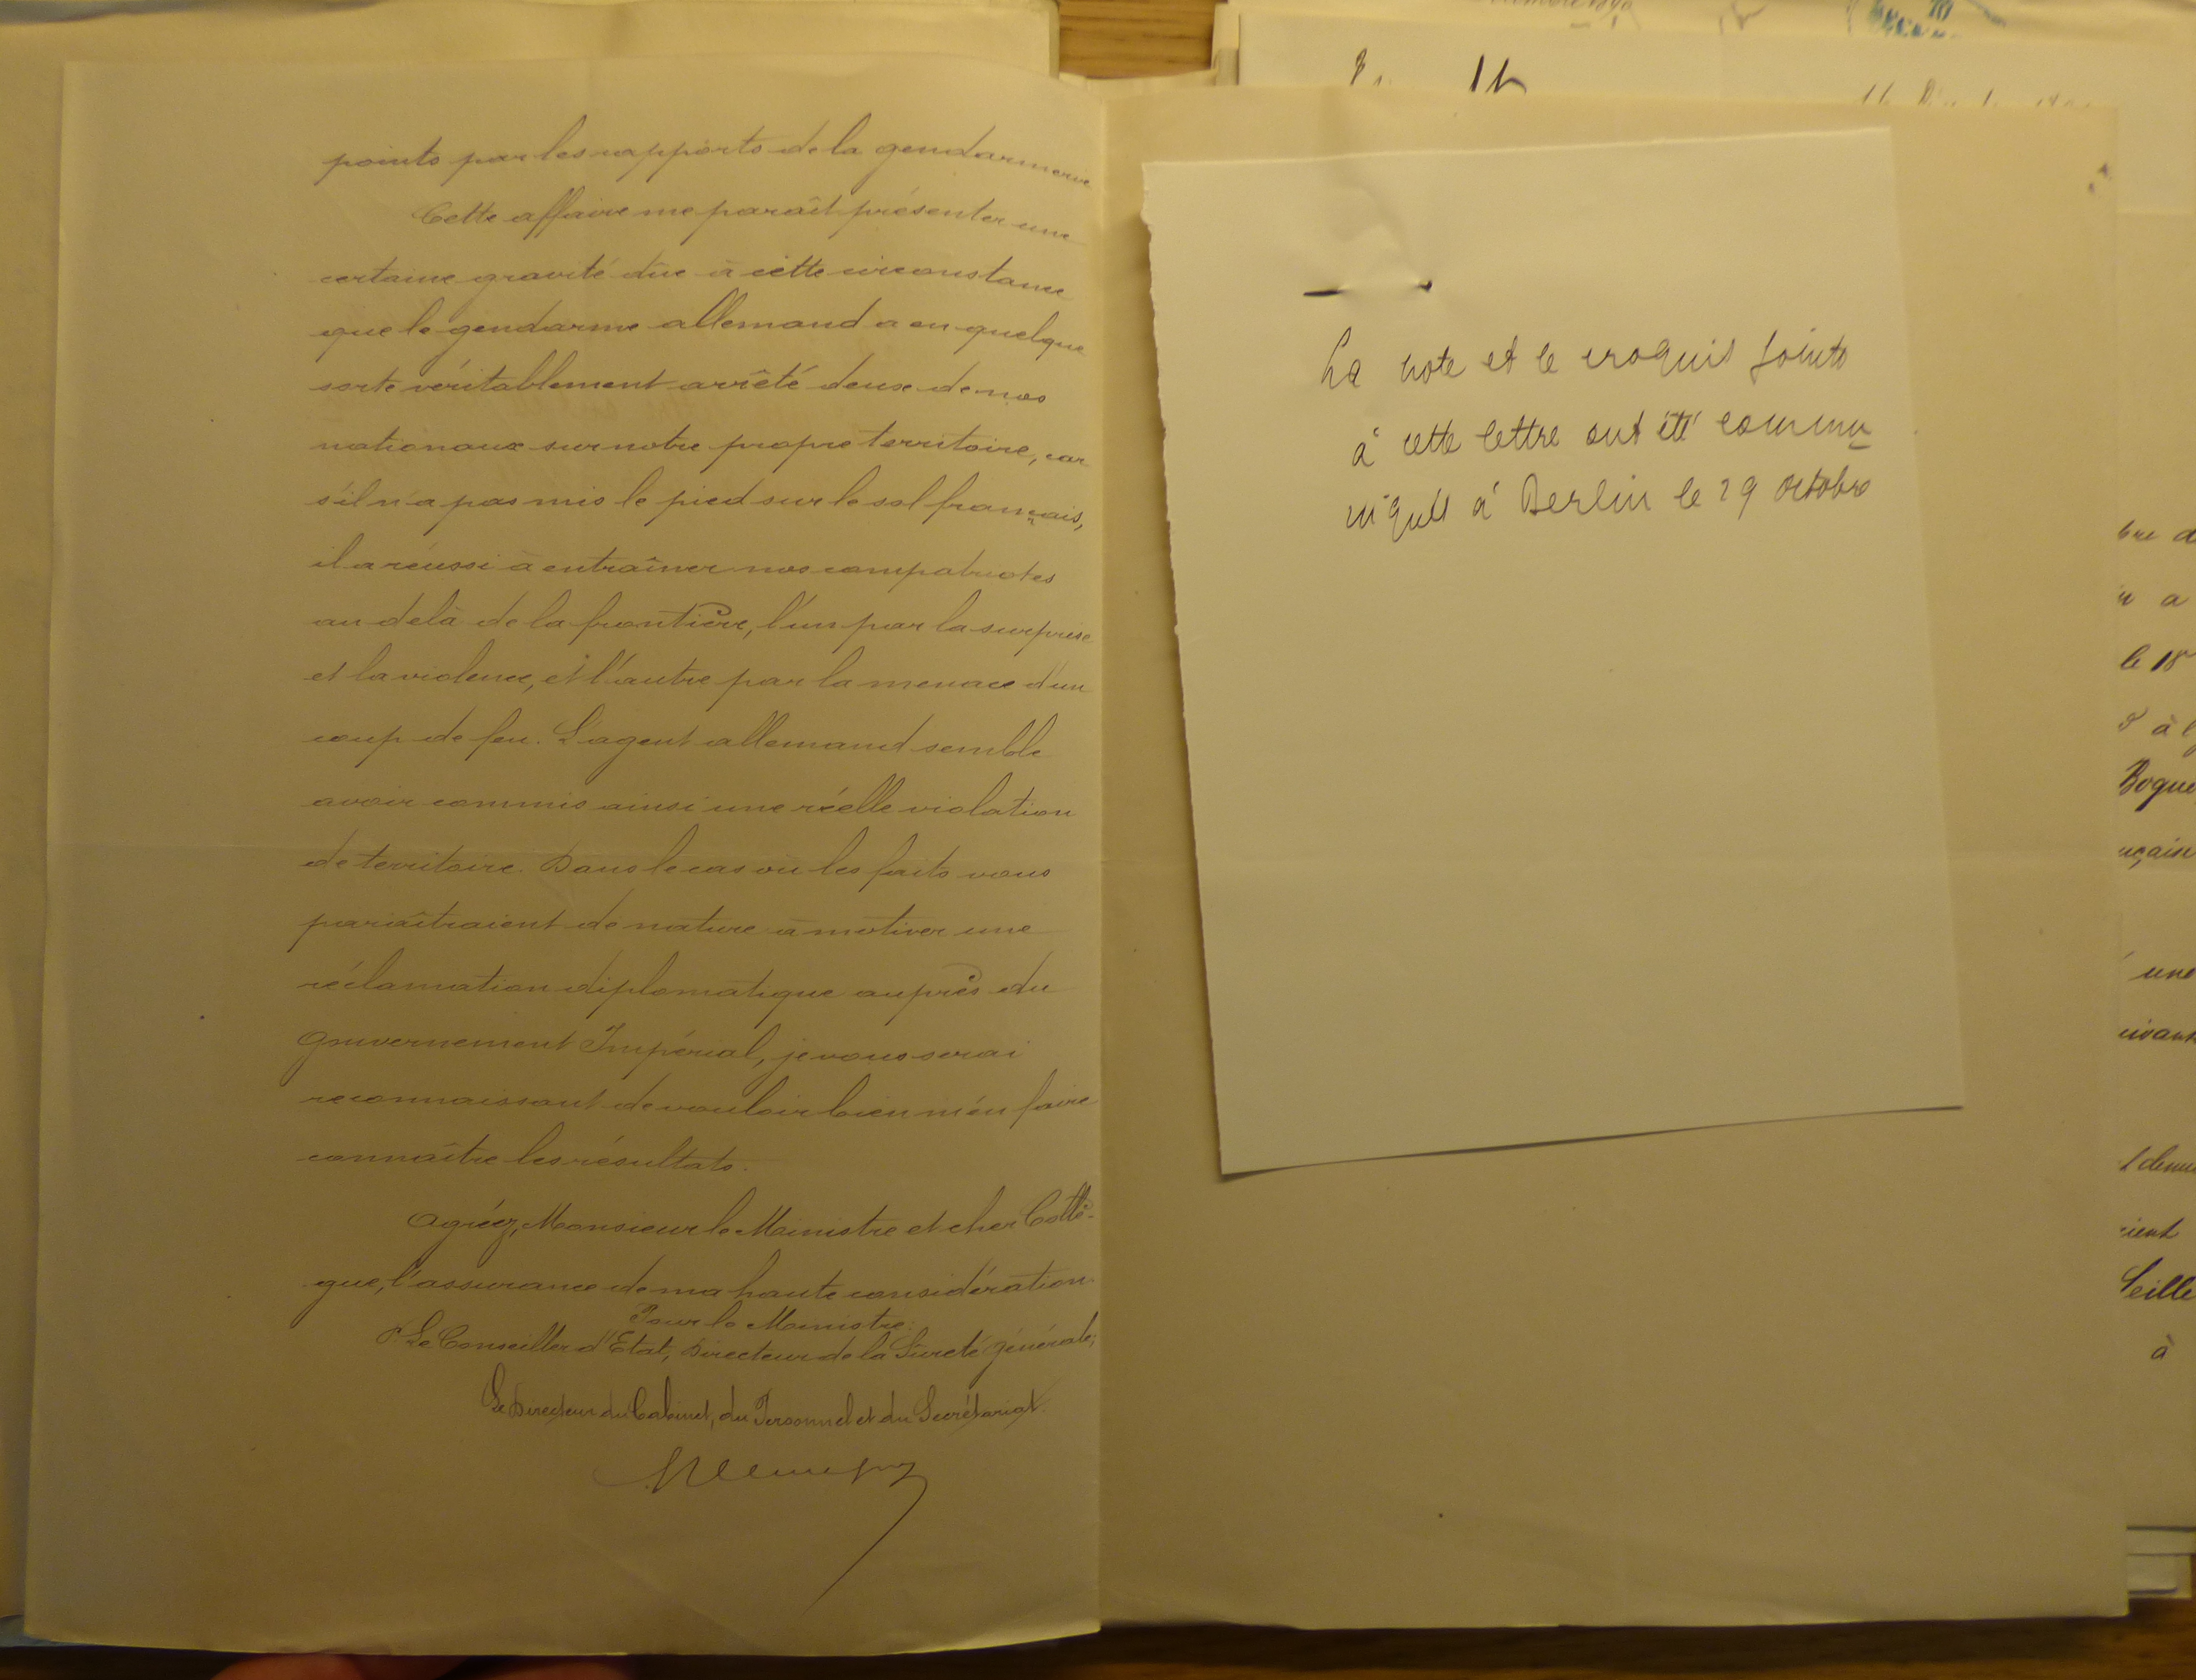 points par les rapports de la gendarmerie
Cette affaire me paraît présenter une
certaine gravité dûe à cette circonstance
que le gendarme allemand a en quelque
sorte véritablement arrêté deux de nos
nationaux sur notre propre territoire, car
s'il n'a pas mis le pied sur le sol français,
il a réussi à entraîner nos compatriotes
au delà de la frontière, l'un par la surprise
et la violence, et l'autre par la menace d'un
coup de feu. L'agent allemand semble
avoir commis ainsi une réelle violation
de territoire. Dans le cas où les faits vous
paraîtraient de nature à motiver une
réclamation diplomatique auprès du
Gouvernement Impérial, je vous serai
reconnaissant de vouloir bien m'en faire
connaître les résultats.
Agréez, Monsieur le Ministre et cher Collè-
gue, l'assurance de ma haute considération.
Pour le Ministre:
P. Le Conseiller d'Etat, Directeur de la Sureté générale;
Le Directeur du Cabinet, du Personnel et du Secrétariat
La note et le croquis joints
à cette lettre ont été commu
niqués à Berlin le 29 octobre
le 18
à
une
Seille
à